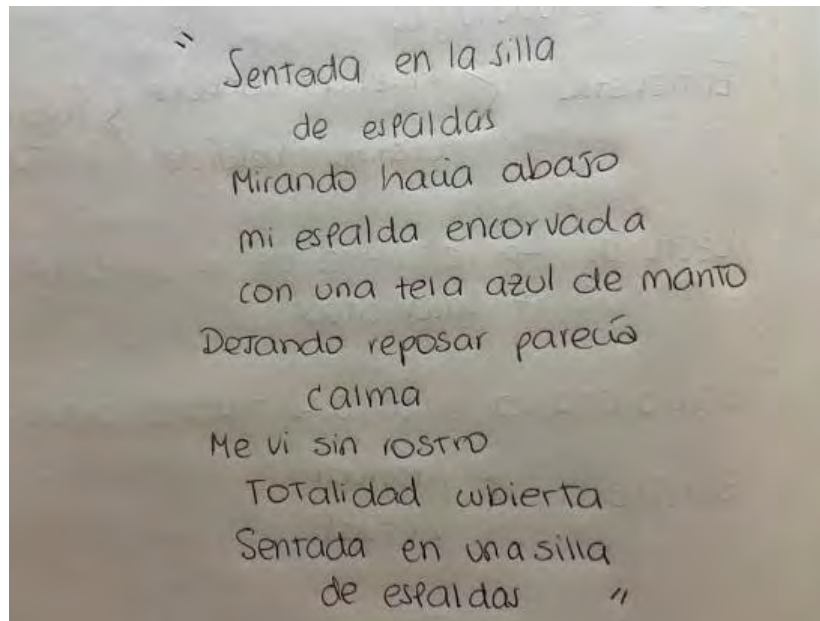 " Sentada en la silla
de espaldas
Mirando hacia abajo
mi espalda encorvada
con una tela azul de manto
Dejando reposar parecía
calma
Me vi sin rostro
Totalidad cubierta
Sentada en una silla
de espaldas "